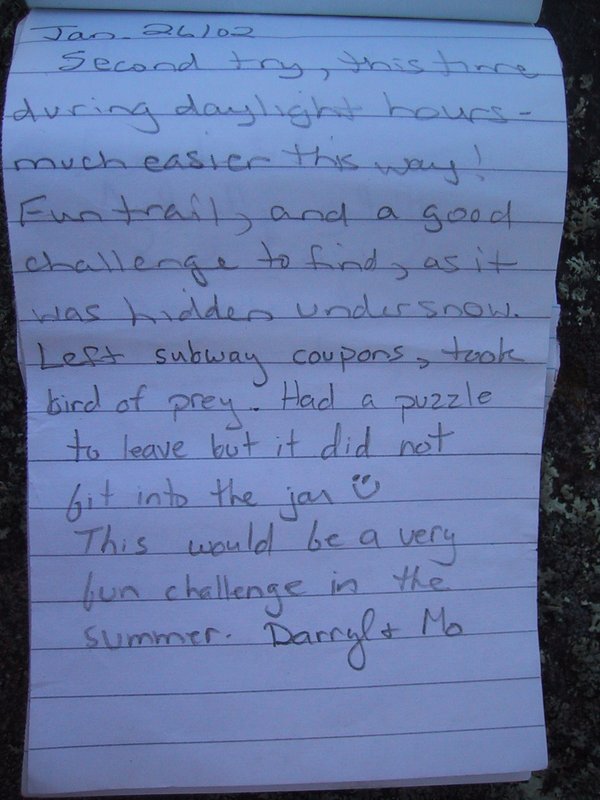 Jan. 26/02
Second try, this time
during daylight hours-
much easier this way!
Fun trail, and a good
challenge to find, as it
was hidden under snow.
Left subway coupons, took
bird of prey. Had a puzzle
to leave but it did not
fit into the jar ☺
This would be a very
fun challenge in the
summer. Darryl + Mo